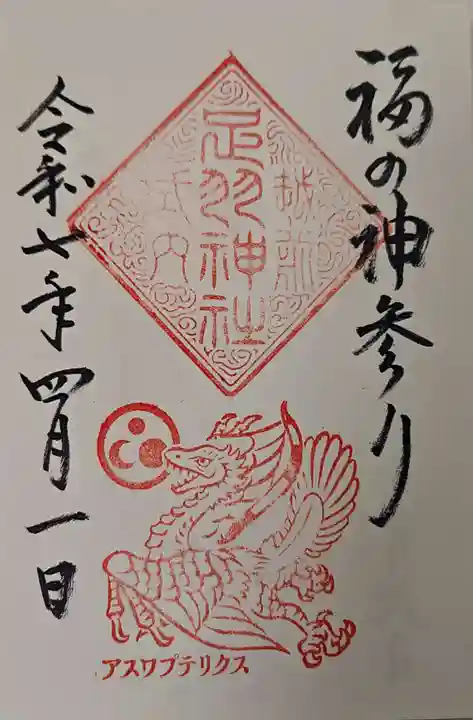 福の神参り
越前
足羽神社
式内
令和七年四月一日
アスワプテリクス